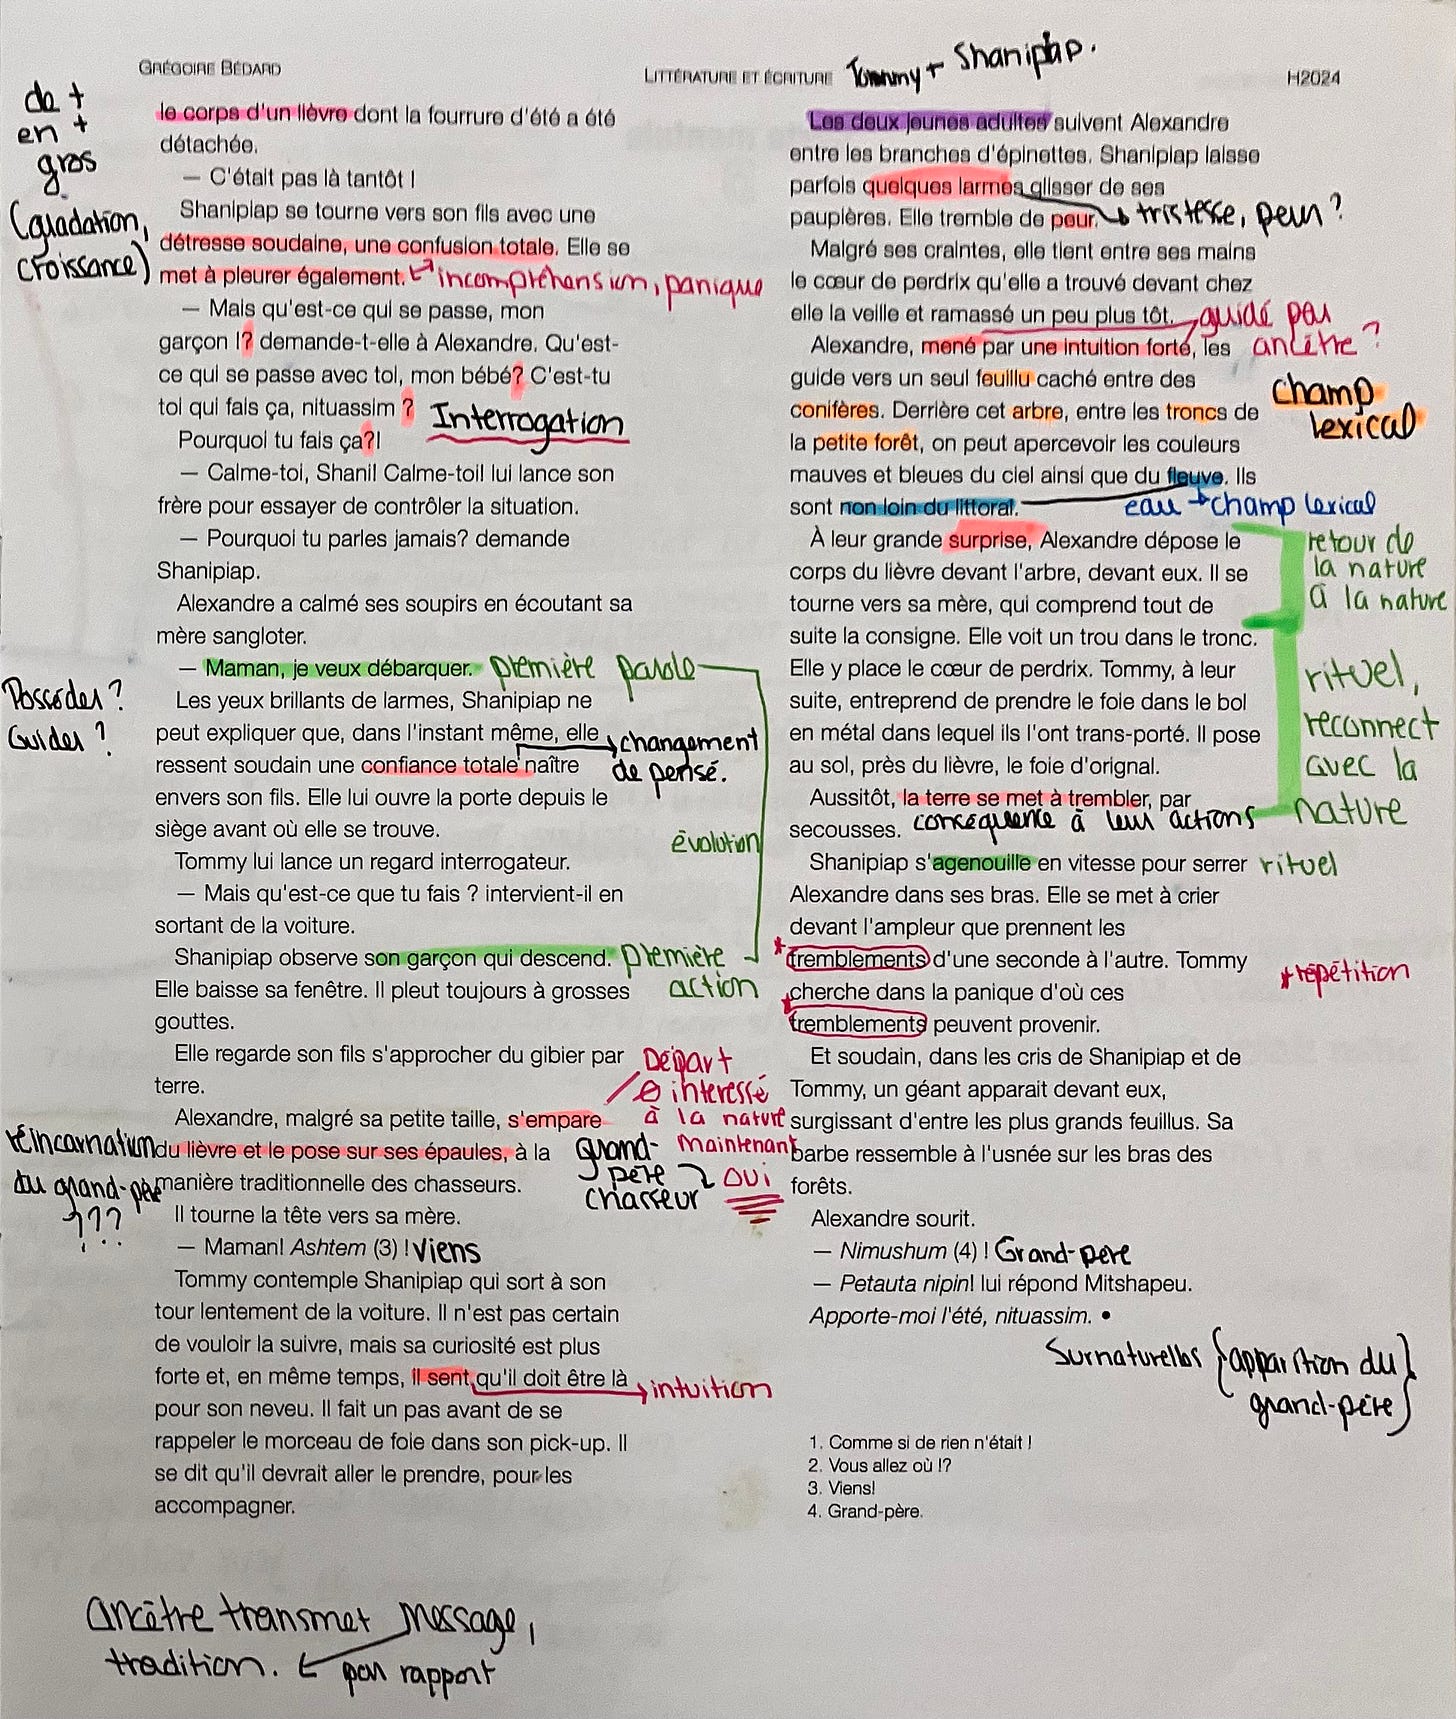 GRÉGOIRE BÉDARD
LITTÉRATURE ET ÉCRITURE
Tommy + Shanipiap.
H2024
de +
en +
gros
(gradation,
croissance)
le corps d'un lièvre dont la fourrure d'été a été
détachée.
— C'était pas là tantôt !
Shanipiap se tourne vers son fils avec une
détresse soudaine, une confusion totale. Elle se
met à pleurer également. incompréhension, panique
— Mais qu'est-ce qui se passe, mon
garçon !? demande-t-elle à Alexandre. Qu'est-
ce qui se passe avec toi, mon bébé? C'est-tu
toi qui fais ça, nituassim ? Interrogation
Pourquoi tu fais ça?!
— Calme-toi, Shani! Calme-toi! lui lance son
frère pour essayer de contrôler la situation.
— Pourquoi tu parles jamais? demande
Shanipiap.
Alexandre a calmé ses soupirs en écoutant sa
mère sangloter.
— Maman, je veux débarquer. première parole
Posséder ?
Guider ?
Les yeux brillants de larmes, Shanipiap ne
peut expliquer que, dans l'instant même, elle changement
ressent soudain une confiance totale naître de pensé.
envers son fils. Elle lui ouvre la porte depuis le
siège avant où elle se trouve.
évolution
Tommy lui lance un regard interrogateur.
— Mais qu'est-ce que tu fais ? intervient-il en
sortant de la voiture.
Shanipiap observe son garçon qui descend. première
Elle baisse sa fenêtre. Il pleut toujours à grosses action
gouttes.
Elle regarde son fils s'approcher du gibier par
terre.
Départ
Ø interessé
à la nature
maintenant
oui
Alexandre, malgré sa petite taille, s'empare
du lièvre et le pose sur ses épaules, à la
manière traditionnelle des chasseurs.
grand-
père
chasseur
réincarnation
du grand-père
???
Il tourne la tête vers sa mère.
— Maman! Ashtem (3) ! Viens
Tommy contemple Shanipiap qui sort à son
tour lentement de la voiture. Il n'est pas certain
de vouloir la suivre, mais sa curiosité est plus
forte et, en même temps, il sent qu'il doit être là intuition
pour son neveu. Il fait un pas avant de se
rappeler le morceau de foie dans son pick-up. Il
se dit qu'il devrait aller le prendre, pour les
accompagner.
Ancêtre transmet message,
tradition. par rapport
Les deux jeunes adultes suivent Alexandre
entre les branches d'épinettes. Shanipiap laisse
parfois quelques larmes glisser de ses
paupières. Elle tremble de peur. tristesse, peur ?
Malgré ses craintes, elle tient entre ses mains
le cœur de perdrix qu'elle a trouvé devant chez
elle la veille et ramassé un peu plus tôt. guidé par
Alexandre, mené par une intuition forte, les ancêtre ?
guide vers un seul feuillu caché entre des
conifères. Derrière cet arbre, entre les troncs de
champ
lexical
la petite forêt, on peut apercevoir les couleurs
mauves et bleues du ciel ainsi que du fleuve. Ils
sont non loin du littoral. eau champ lexical
À leur grande surprise, Alexandre dépose le
corps du lièvre devant l'arbre, devant eux. Il se
tourne vers sa mère, qui comprend tout de
retour de
la nature
à la nature
suite la consigne. Elle voit un trou dans le tronc.
Elle y place le cœur de perdrix. Tommy, à leur
suite, entreprend de prendre le foie dans le bol
en métal dans lequel ils l'ont trans-porté. Il pose
au sol, près du lièvre, le foie d'orignal.
rituel,
reconnect
avec la
nature
Aussitôt, la terre se met à trembler, par
secousses. conséquence à leur actions
Shanipiap s'agenouille en vitesse pour serrer rituel
Alexandre dans ses bras. Elle se met à crier
devant l'ampleur que prennent les
*tremblements d'une seconde à l'autre. Tommy
*répétition
cherche dans la panique d'où ces
*tremblements peuvent provenir.
Et soudain, dans les cris de Shanipiap et de
Tommy, un géant apparait devant eux,
surgissant d'entre les plus grands feuillus. Sa
barbe ressemble à l'usnée sur les bras des
forêts.
Alexandre sourit.
— Nimushum (4) ! Grand-père
— Petauta nipin! lui répond Mitshapeu.
Apporte-moi l'été, nituassim. •
Surnaturelles {apparition du
grand-père}
1. Comme si de rien n'était !
2. Vous allez où !?
3. Viens!
4. Grand-père.